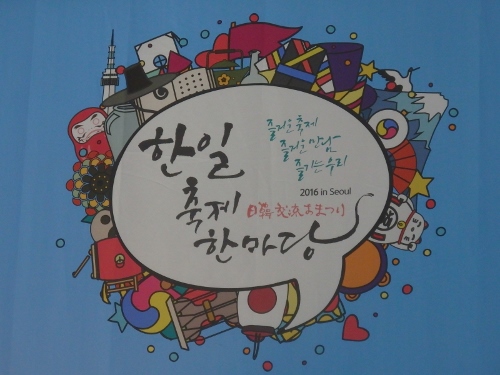 한일
축제
한마당
즐거운 축제
즐거운 만남
즐기는 우리
2016 in Seoul
日韓交流おまつり